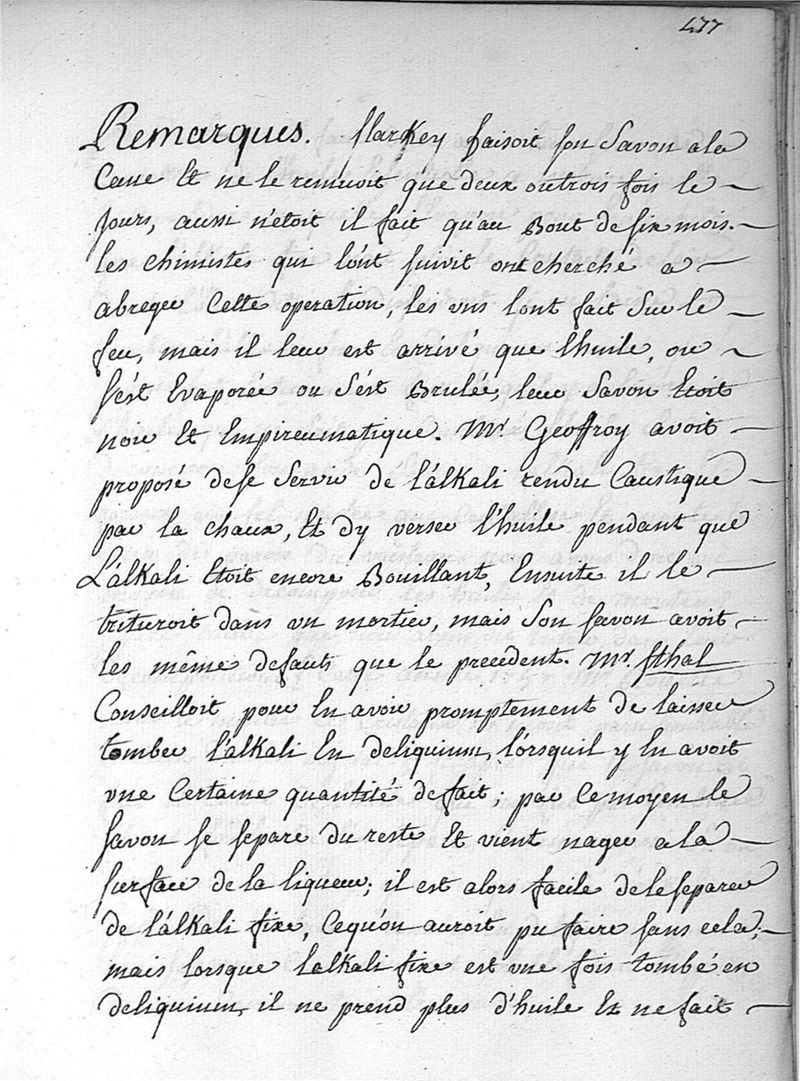 477
Remarques. Starkey faisoit son Savon a la
Cave Et ne le remuoit que deux ou trois fois le
Jours, aussi n'etoit il fait qu'au Bout de six mois.
les chimistes qui l'ont suivit ont cherché a
abreger Cette operation, les uns l'ont fait Sur le
feu, mais il leur est arrivé que l'huile, ou
s'est Evaporée ou S'est Brulée, leur Savon Etoit
noir Et Empireumatique. Mr. Geoffroy avoit
proposé de se Servir de l'alkali rendu Caustique
par la chaux, Et d'y verser l'huile pendant que
L'alkali Etoit encore Bouillant, Ensuite il le
trituroit dans un mortier, mais Son savon avoit
les même defauts que le precedent. Mr. Sthal
Conseilloit pour En avoir promptement de laisser
tomber l'alkali En deliquium, lorsquil y En avoit
une Certaine quantité de fait; par Ce moyen le
savon se separe du reste Et vient nager a la
surface de la liqueur; il est alors facile de le separer
de l'alkali fixe, Cequ'on auroit pu faire sans cela;
mais lorsque l'alkali fixe est une fois tombé en
deliquium, il ne prend plus d'huile Et ne fait